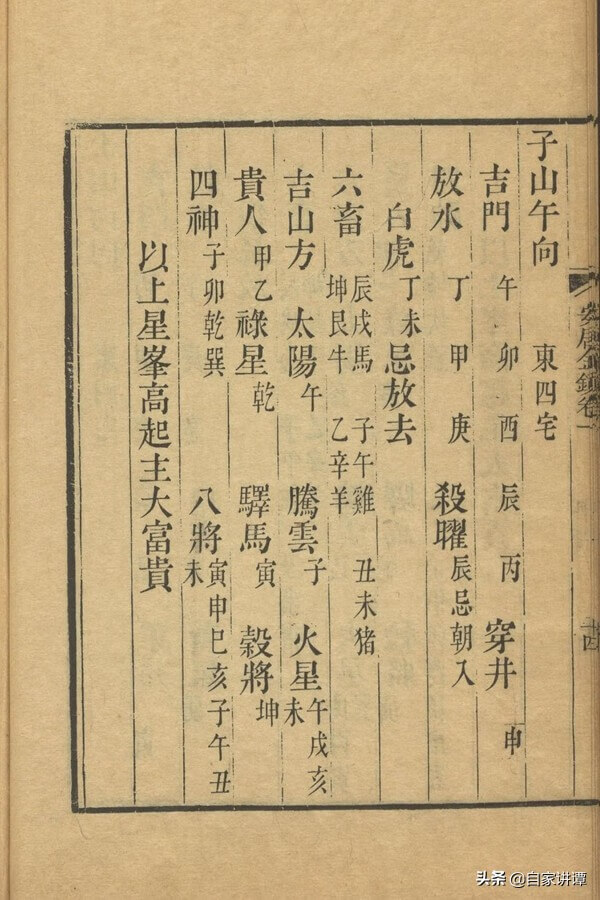 子山午向 東四宅
吉門 午 卯 酉 辰 丙 穿井 申
放水 丁 甲 庚 殺曜 辰忌朝入
白虎 丁未 忌放去
六畜 辰戌馬 子午雞 丑未猪
坤艮牛 乙辛羊
吉山方 太陽 午 騰雲 子 火星 午戌亥
未
貴人 甲乙 祿星 乾 驛馬 寅 穀將 坤
四神 子卯乾巽 八將 寅申巳亥子午丑
未
以上星峯高起主大富貴
卷一
十四
头条 @自家讲谭